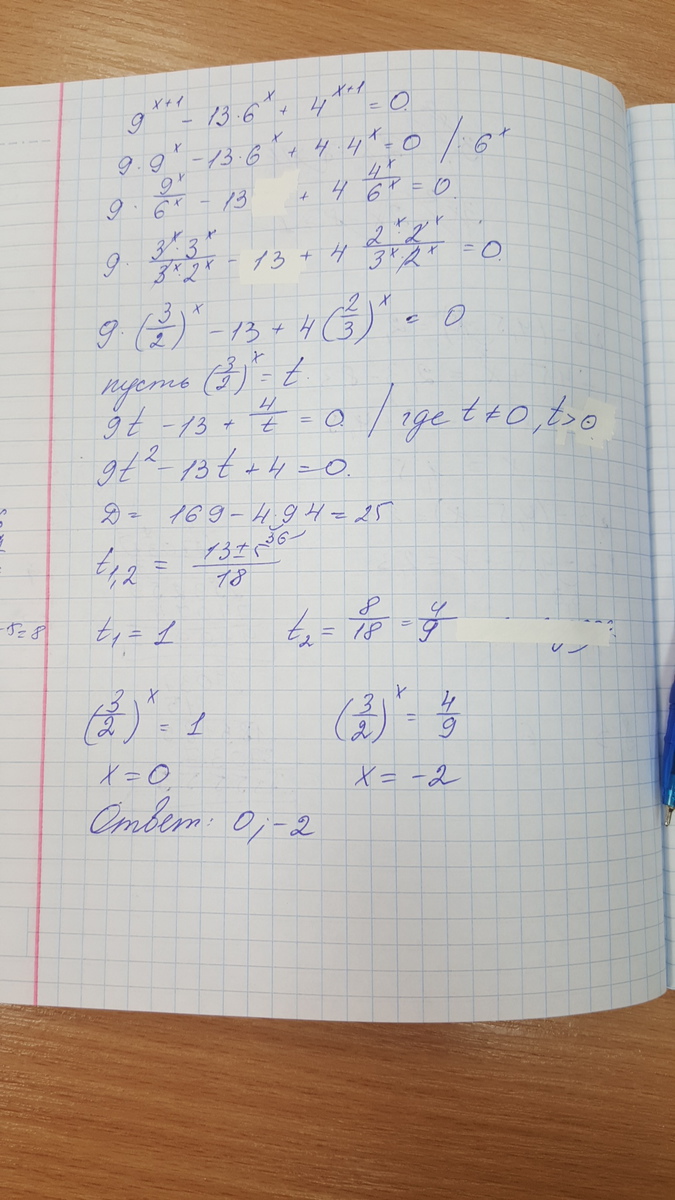 9^(x+1) - 13·6^x + 4^(x+1) = 0
9·9^x - 13·6^x + 4·4^x = 0 / : 6^x
9· 9^x/6^x - 13 + 4 4^x/6^x = 0
9· (3^x·3^x)/(3^x·2^x) - 13 + 4 (2^x·2^x)/(3^x·2^x) = 0
9·(3/2)^x - 13 + 4(2/3)^x = 0
пусть (3/2)^x = t
9t - 13 + 4/t = 0 / где t ≠ 0, t>0
9t^2 - 13t + 4 = 0.
Д = 169 - 4·9·4 = 25
36
t1,2 = (13±5)/18
-5=8
t1 = 1 t2 = 8/18 = 4/9
(3/2)^x = 1 (3/2)^x = 4/9
x = 0 x = -2
Ответ: 0; -2